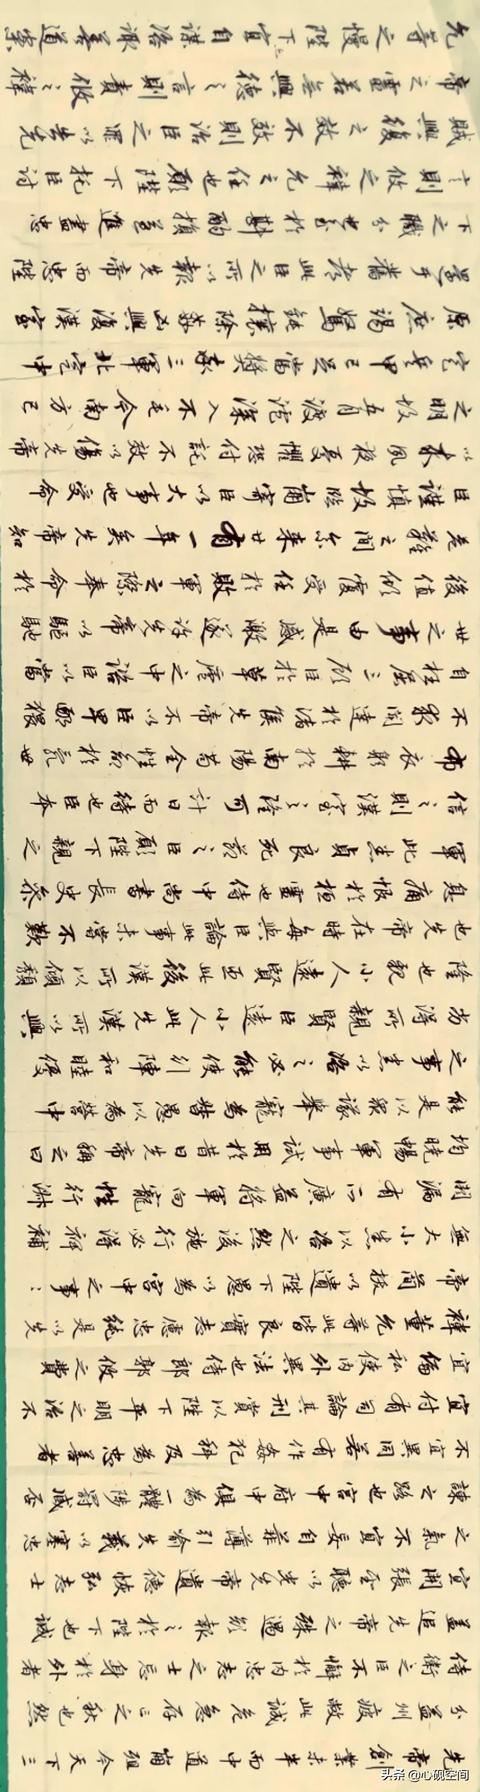 先帝創業未半而中道崩殂今天下三
分益州疲敝此誠危急存亡之秋也然
侍衛之臣不懈於內忠志之士忘身於外者
蓋追先帝之殊遇欲報之於陛下也誠
宜開張聖聽以光先帝遺德恢弘志士
之氣不宜妄自菲薄引喻失義以塞忠
諫之路也宮中府中俱為一體陟罰臧否
不宜異同若有作奸犯科及為忠善者
宜付有司論其刑賞以陛下平明之治不
宜偏私使內外異法也侍郎郭攸之費
禕董允等此皆良實志慮忠純是以先
帝簡拔以遺陛下愚以為宮中之事:
無大小悉以咨之然後施行必得裨補
闕漏有所廣益將軍向寵性行淑
均曉暢軍事試用於昔日先帝稱之曰
能是以眾議舉寵為督愚以為營中
之事悉以咨之必能使行陣和睦優
劣得所親賢臣遠小人此先漢所以興
隆也親小人遠賢臣此後漢所以傾頹
也先帝在時每與臣論此事未嘗不歎
息痛恨於桓靈也侍中尚書長史參
軍此悉貞良死節之臣願陛下親之
信之則漢室之隆可計日而待也臣本
布衣躬耕於南陽苟全性命於亂世
不求聞達於諸侯先帝不以臣卑鄙猥
自枉屈三顧臣於草廬之中諮臣以當
世之事由是感激遂許先帝以驅馳
後值傾覆受任於敗軍之際奉命於
危難之間爾來廿有一年矣先帝知
臣謹慎故臨崩寄臣以大事也受命
以來夙夜憂懼恐付託不效以傷先帝
之明故五月渡瀘深入不毛今南方已
定兵甲已足當獎率三軍北定中
原庶竭駑鈍攘除姦凶興復漢室
還於舊都此臣之所以報先帝而忠陛
下之職分也至於斟酌損益進盡忠
言則攸之禕允之任也願陛下托臣討
賊興復之效不效則治臣之罪以告先
帝之靈若無興德之言則責攸之禕
允等之慢陛下宜自謀咨諏善道察
头条 @心砚空间